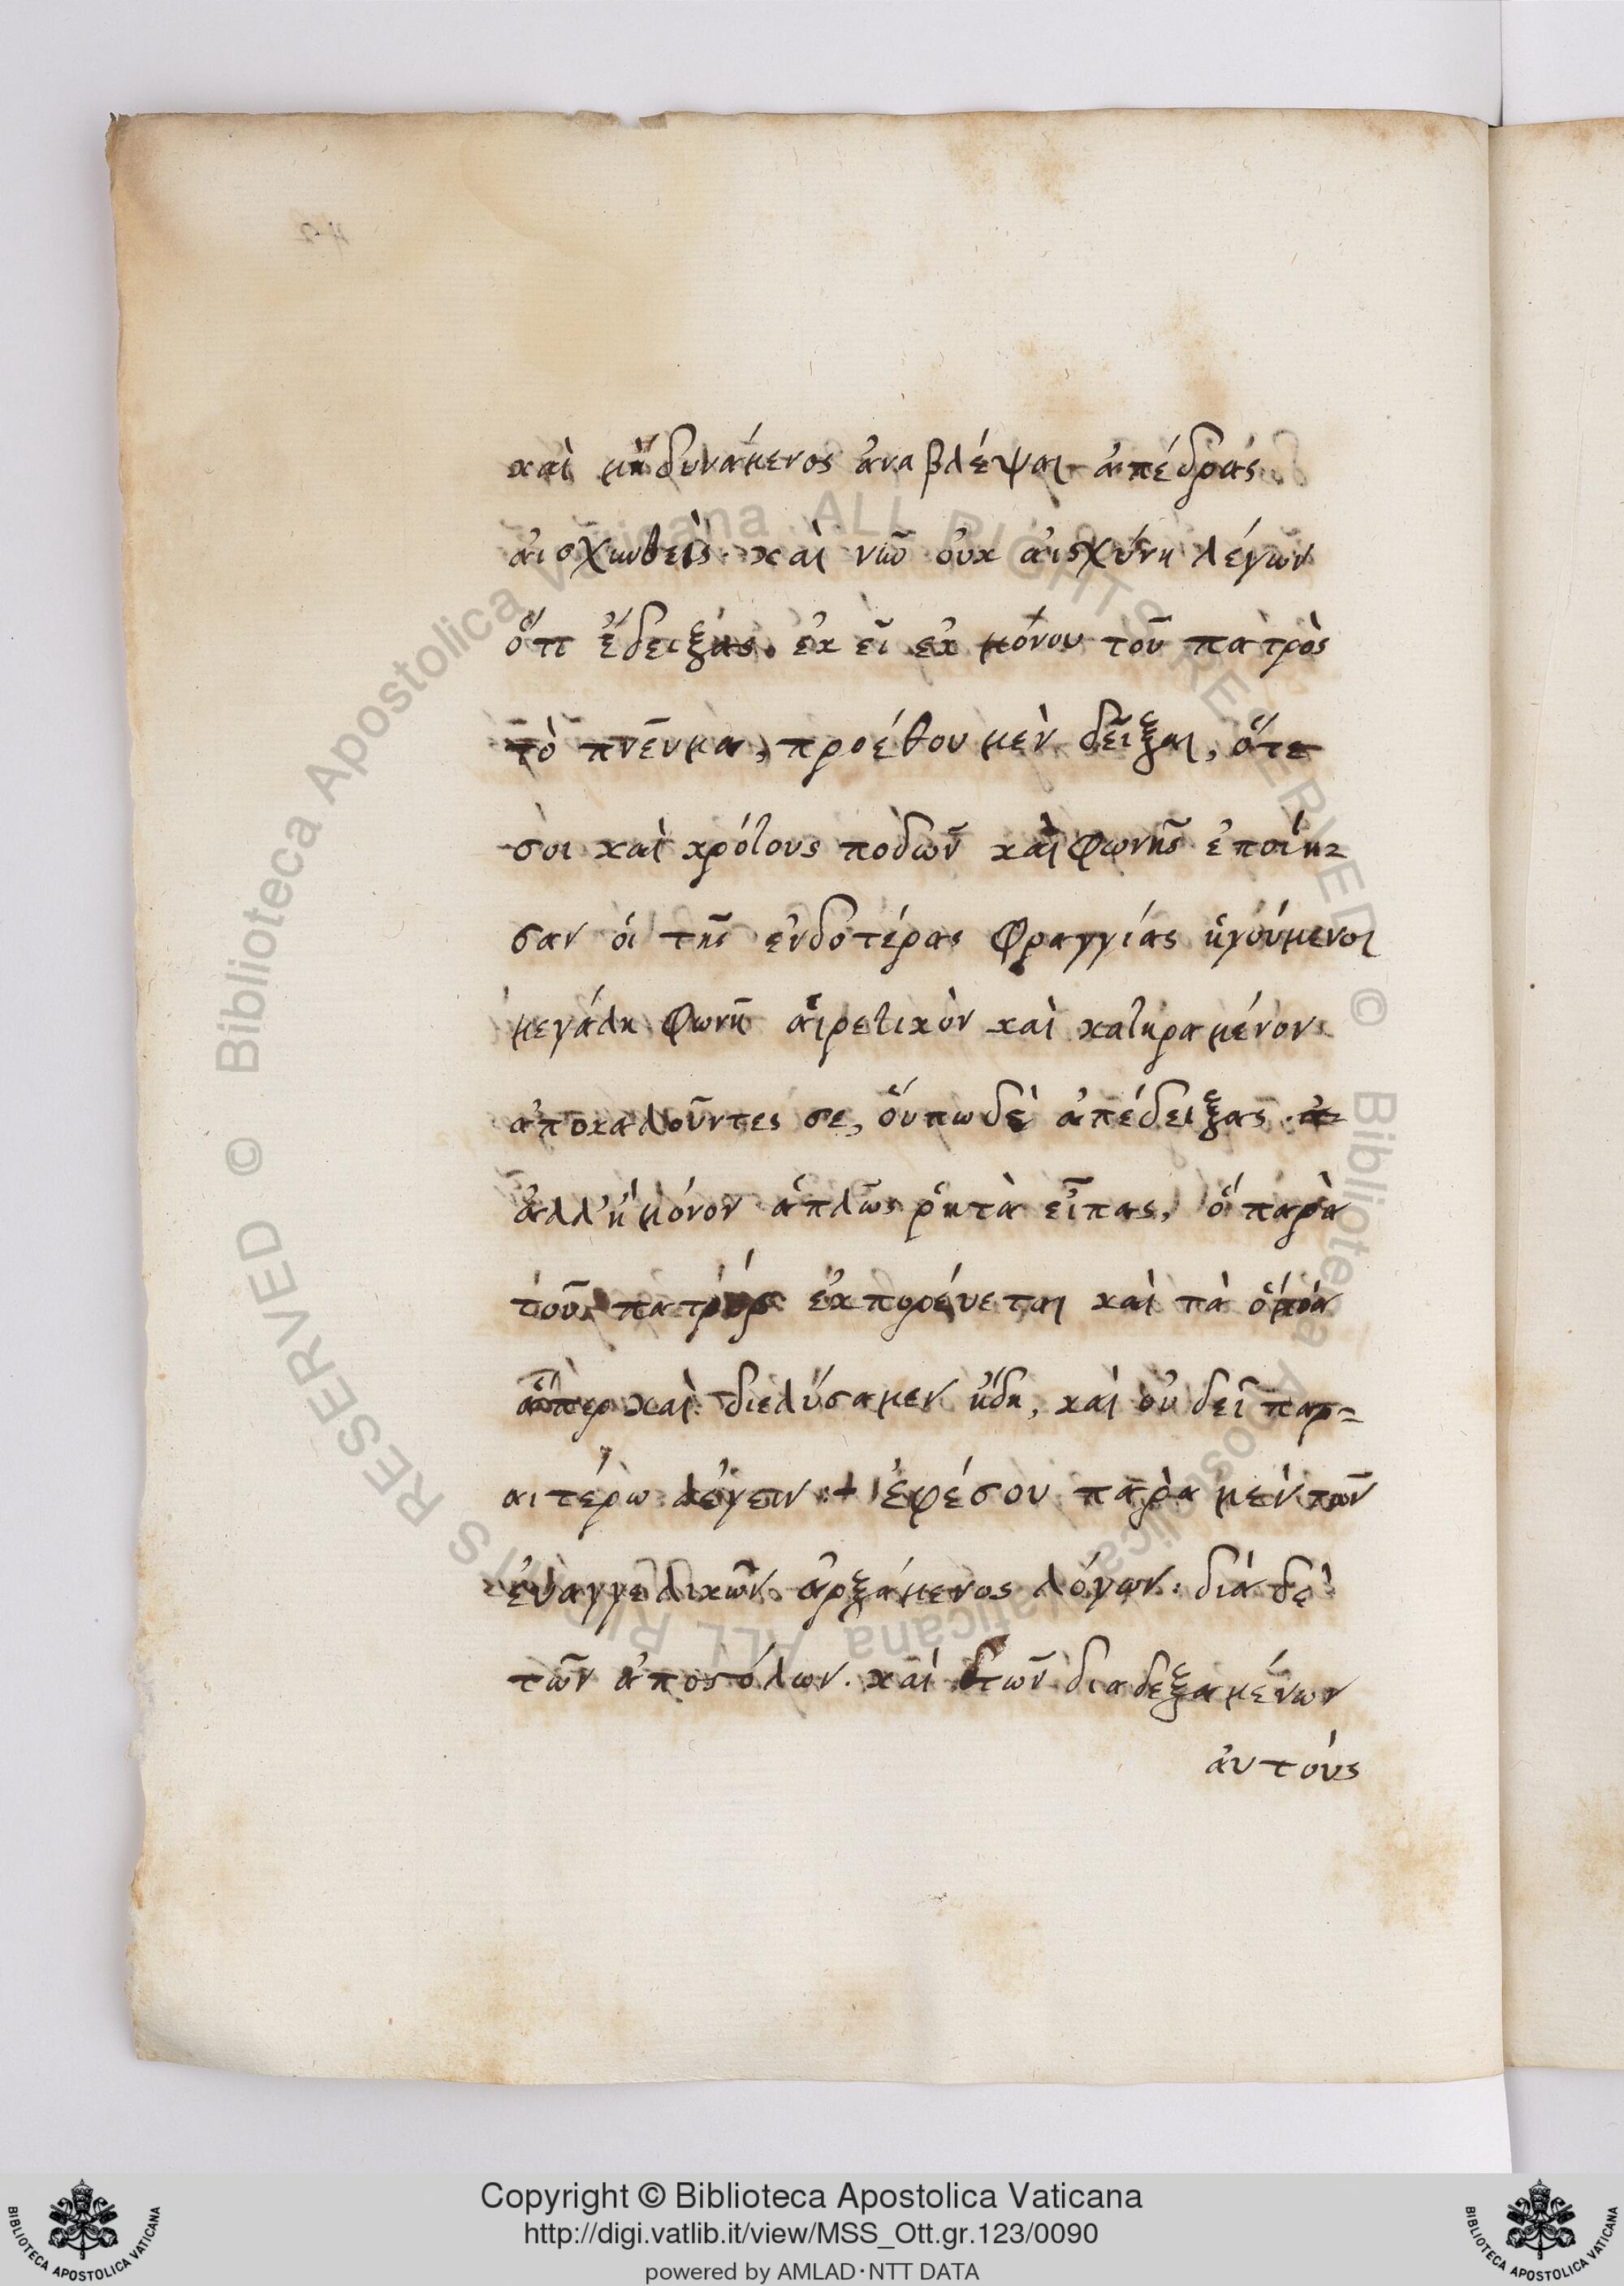 καὶ μὴ δυνάμενος ἀναβλέψαι ἀπέδρας
ἀισχυνθεὶς· καὶ νῦν ὀυκ ἀισχύνη λέγων
ὅτι ἔδειξας. ἐκ εἰ ἐκ μόνου τοῦ πατρὸς
τὸ πνεῦμα, προέθου μὲν δεῖξαι, ὅτε
σοι καὶ κρότους ποδῶν καὶ φωνῆς ἐποίη-
σαν ὁι τῆς ἐνδοτέρας φραγγίας ἡγούμενοι
μεγάλη φωνῆ ἁιρετικὸν καὶ κατηραμένον
ἀποκαλοῦντες σε, ὄυπω δὲ ἀπέδειξας
ἀλλ' ἢ μόνον ἁπλῶς ῥητὰ εἶπας, ὃ παρὰ
τοῦ πατρός ἐκπορέυεται καὶ τὰ ὅμοια
ἅπερ καὶ διελύσαμεν ἤδη, καὶ ὀυ δεῖ παρ=
αιτέρω λέγειν + ἐφέσου παρὰ μὲν τῶν
ἐυαγγελικῶν ἀρξάμενος λόγων· διὰ δὲ
τῶν ἀποστόλων· καὶ τῶν διαδεξαμένων
ἀυτούς
Copyright © Biblioteca Apostolica Vaticana
http://digi.vatlib.it/view/MSS_Ott.gr.123/0090
powered by AMLAD·NTT DATA
BIBLIOTECA APOSTOLICA VATICANA
BIBLIOTECA APOSTOLICA VATICANA
© Biblioteca Apostolica Vaticana ALL RIGHTS RESERVED
© Biblioteca Apostolica Vaticana ALL RIGHTS RESERVED